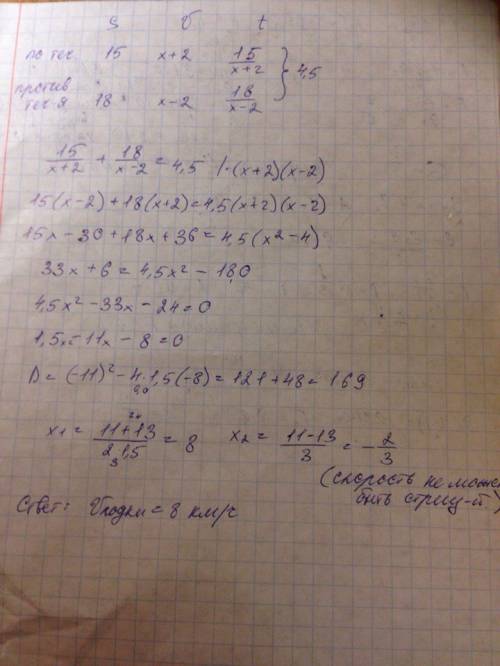 S V t
по теч. 15 x+2 15/(x+2) } 4,5
против
теч-я 18 x-2 18/(x-2)
15/(x+2) + 18/(x-2) = 4,5 |·(x+2)(x-2)
15(x-2)+18(x+2)=4,5(x+2)(x-2)
15x-30+18x+36=4,5(x²-4)
33x+6=4,5x²-18,0
4,5x²-33x-24=0
1,5x-11x-8=0
D=(-11)²-4·1,5(-8)=121+48=169
x₁=(11+13)/(2·1,5)=8 x₂=(11-13)/3=-2/3
(скорость не может
быть отриц-й)
Ответ: Vлодки=8 км/ч